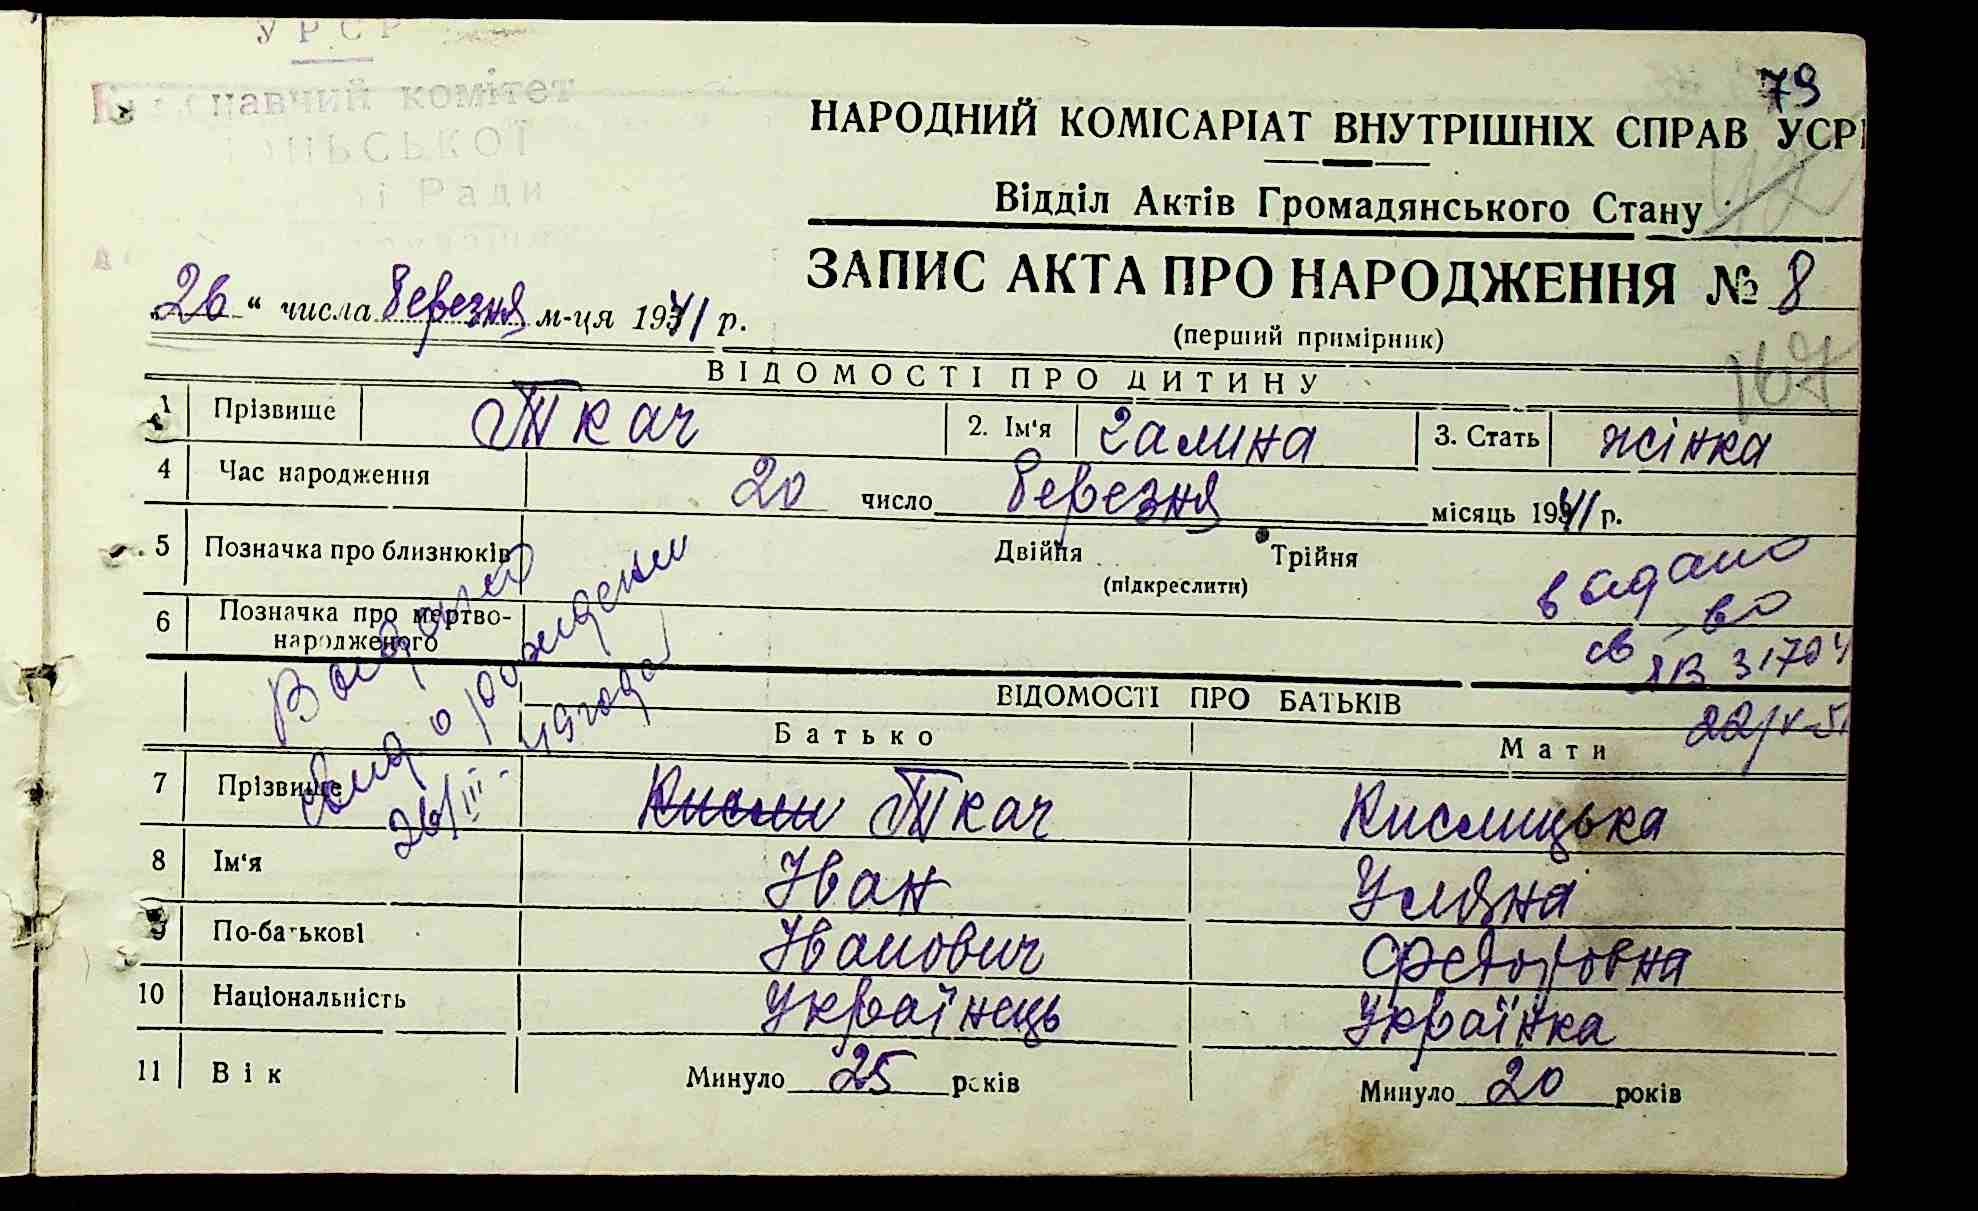 УРСР
навчий комітет
ської
Ради
79
НАРОДНИЙ КОМІСАРІАТ ВНУТРІШНІХ СПРАВ УСРР
Відділ Актів Громадянського Стану
42
ЗАПИС АКТА ПРО НАРОДЖЕННЯ № 8
26 “ числа березня м-ця 1941 р.
(перший примірник)
167
ВІДОМОСТІ ПРО ДИТИНУ
1 Прізвище Ткач 2. Ім'я Галина 3. Стать жінка
4 Час народження 20 число березня місяць 1941 р.
5 Позначка про близнюків Двійня Трійня
(підкреслити)
6 Позначка про мертво-
народженого
видано
св-во
ЯВ 3170
22/V-51
о рождении
26/III- 49 года
ВІДОМОСТІ ПРО БАТЬКІВ
Батько Мати
7 Прізвище Ткач Кислицька
8 Ім'я Іван Уляна
9 По-батькові Іванович Федоровна
10 Національність Українець Українка
11 Вік Минуло 25 років Минуло 20 років